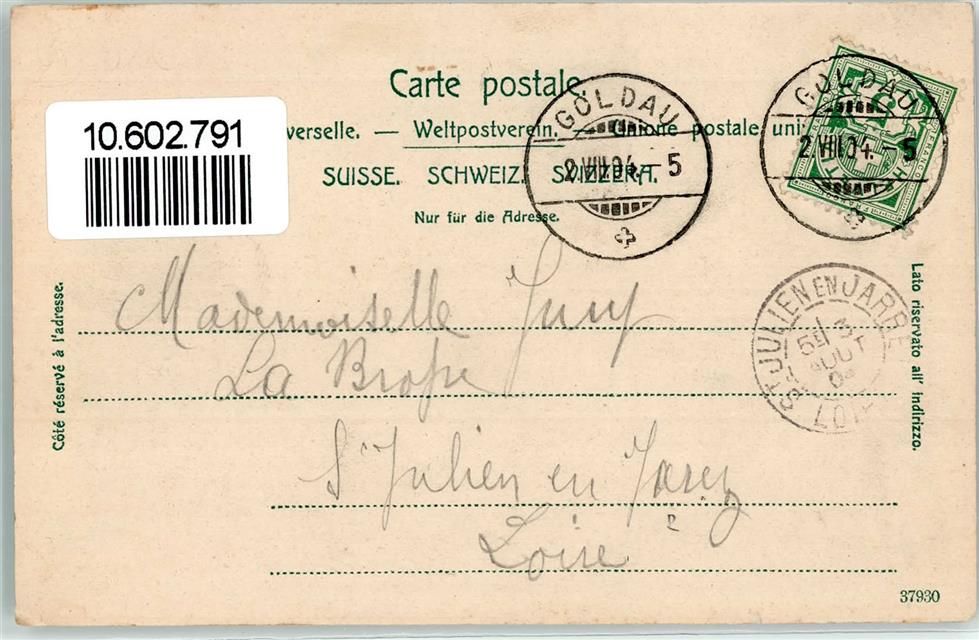 Carte postale.
10.602.791
verselle. — Weltpostverein. — Unione postale uni
SUISSE. SCHWEIZ. SVIZZERA.
Nur für die Adresse.
GOLDAU
2.VIII.04.-5
GOLDAU
2.VIII.04.-5
Côté réservé à l'adresse.
Lato riservato all' indirizzo.
ST JULIEN EN JARRE
5E 3
AOUT
04
LOIRE
Mademoiselle
La
St Julien en Jarez
Loire
37930